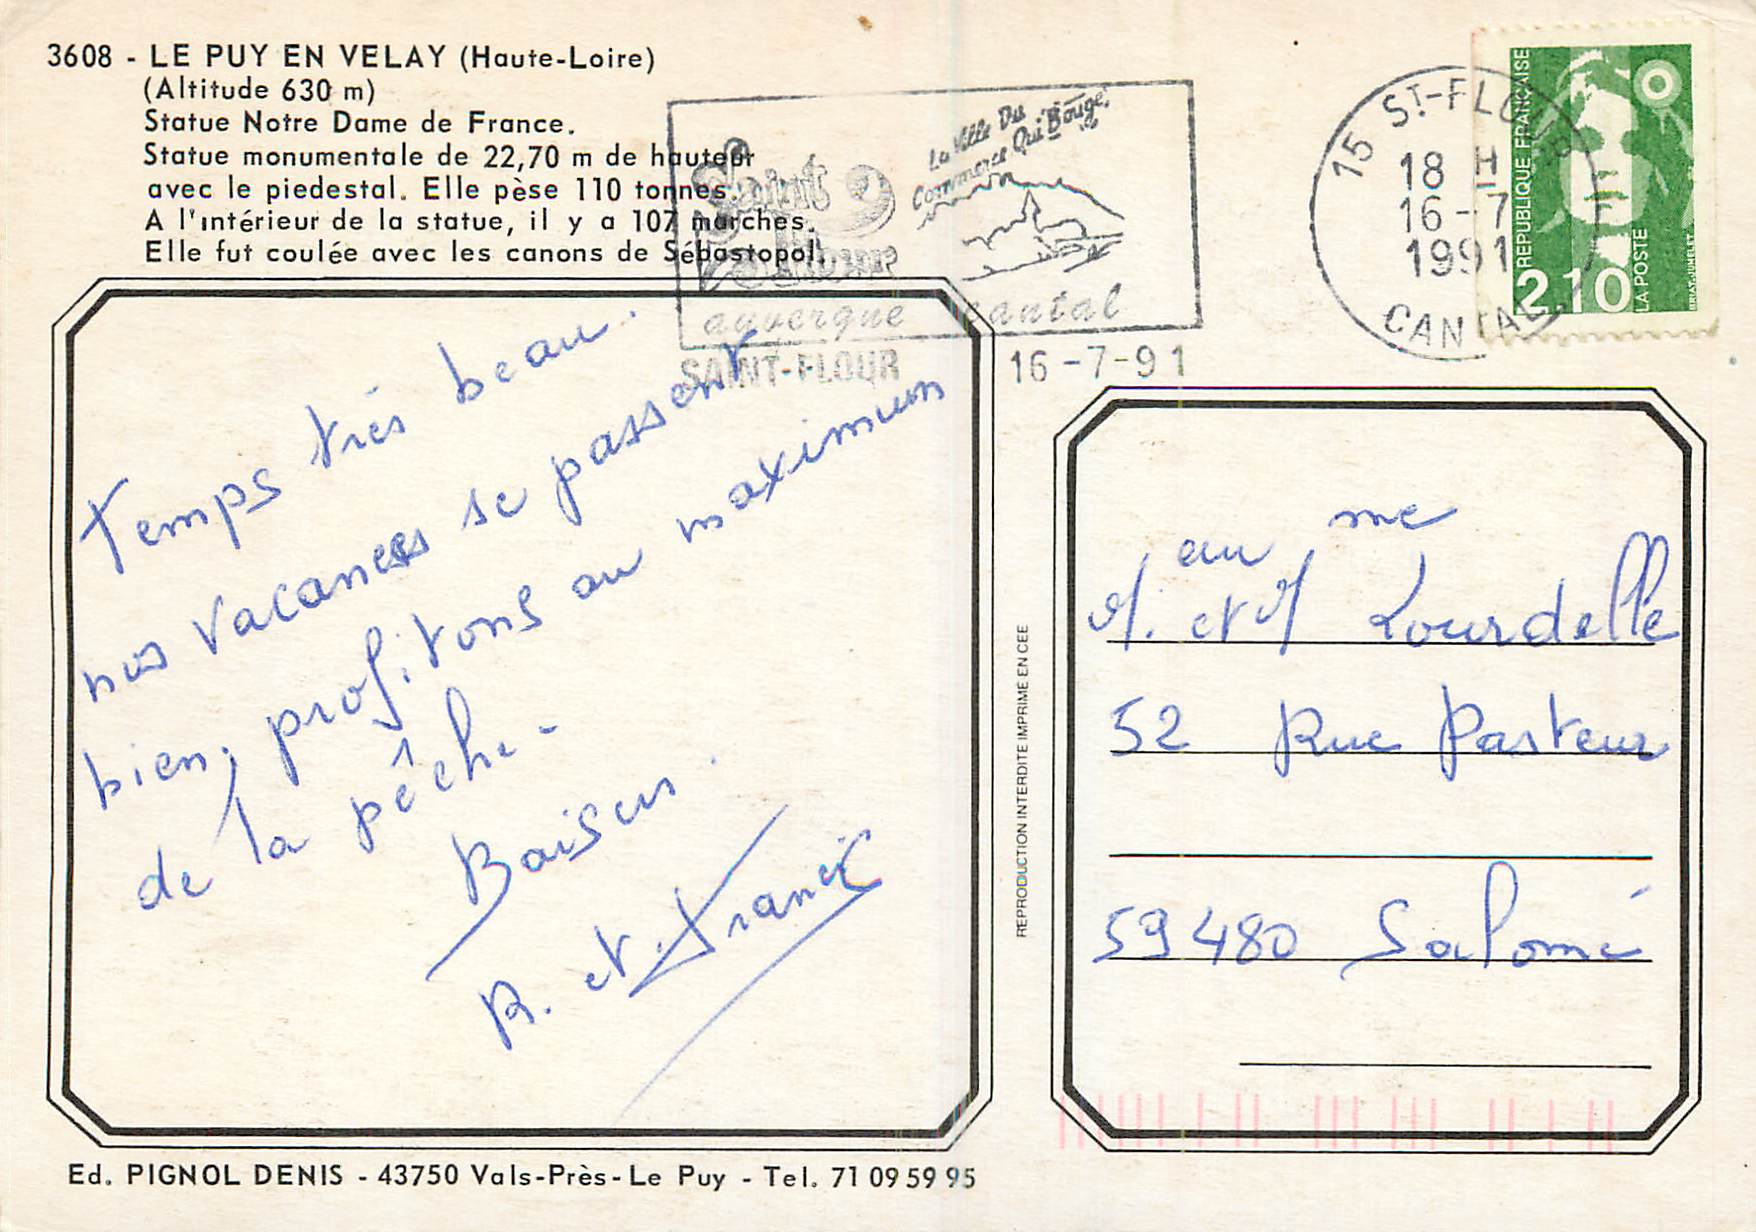 3608 - LE PUY EN VELAY (Haute-Loire)
(Altitude 630 m)
Statue Notre Dame de France.
Statue monumentale de 22,70 m de hauteur
avec le piedestal. Elle pèse 110 tonnes.
A l'intérieur de la statue, il y a 107 marches.
Elle fut coulée avec les canons de Sébastopol.
Saint Flour
La Ville Du
Commerce Qui Bouge!
auvergne cantal
SAINT-FLOUR 16-7-91
15 ST-FLOUR
18 H
16-7
1991
CANTAL
REPUBLIQUE FRANÇAISE
2,10
LA POSTE
BRIAT-JUMELET
Temps très beau.
nos vacances se passent
bien, profitons au maximum
de la pêche.
Baisers.
R. et Francis
REPRODUCTION INTERDITE IMPRIME EN CEE
M. et Mme Lourdelle
52 Rue Pasteur
59480 Salomé
Ed. PIGNOL DENIS - 43750 Vals-Près-Le Puy - Tel. 71 09 59 95